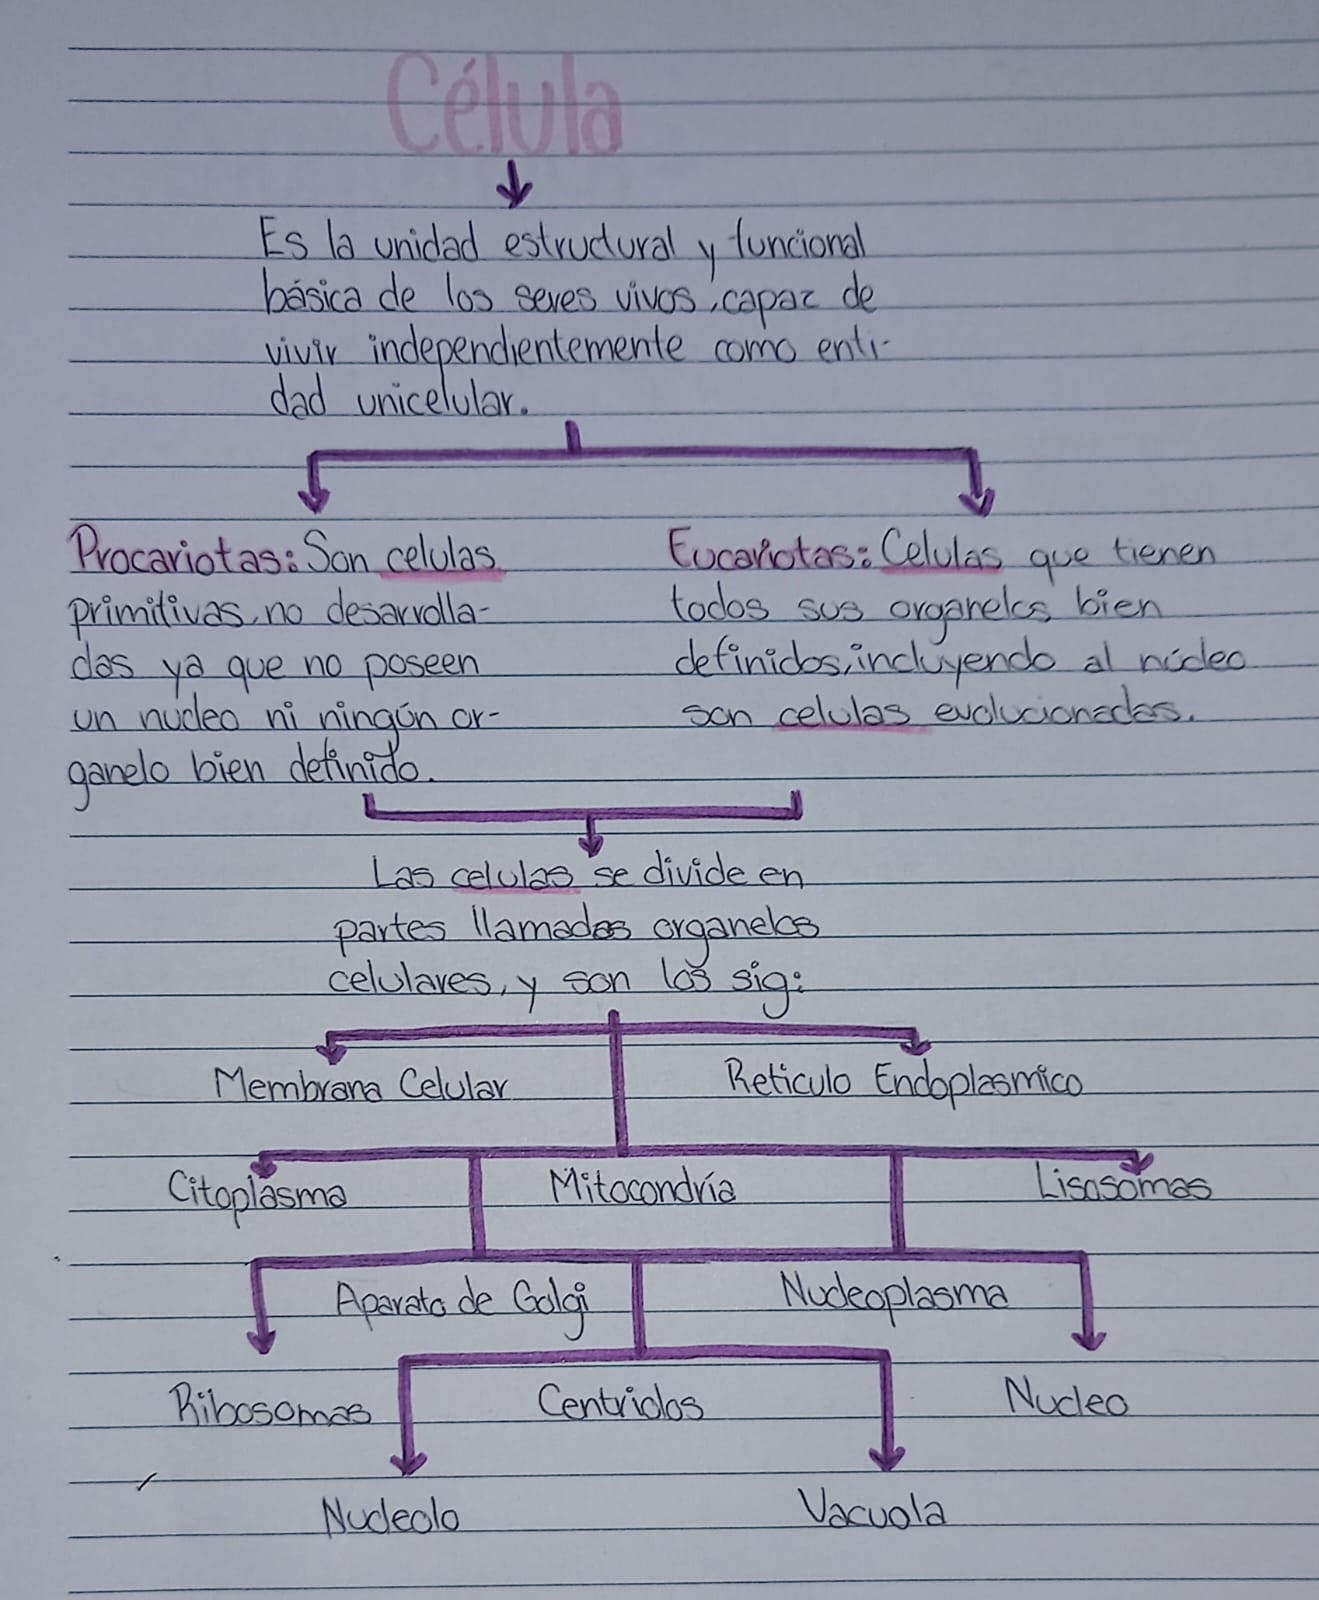 Célula
Es la unidad estructural y funcional
básica de los seres vivos, capaz de
vivir independientemente como enti-
dad unicelular.
Procariotas: Son celulas
primitivas, no desarrolla-
das ya que no poseen
un nucleo ni ningún or-
ganelo bien definido.
Eucariotas: Celulas que tienen
todos sus organelos bien
definidos, incluyendo al núcleo
son celulas evolucionadas.
Las celulas se divide en
partes llamadas organelos
celulares, y son los sig:
Membrana Celular
Reticulo Endoplasmico
Citoplasma
Mitocondria
Lisosomas
Aparato de Golgi
Nucleoplasma
Ribosomas
Centriolos
Nucleo
Nucleolo
Vacuola